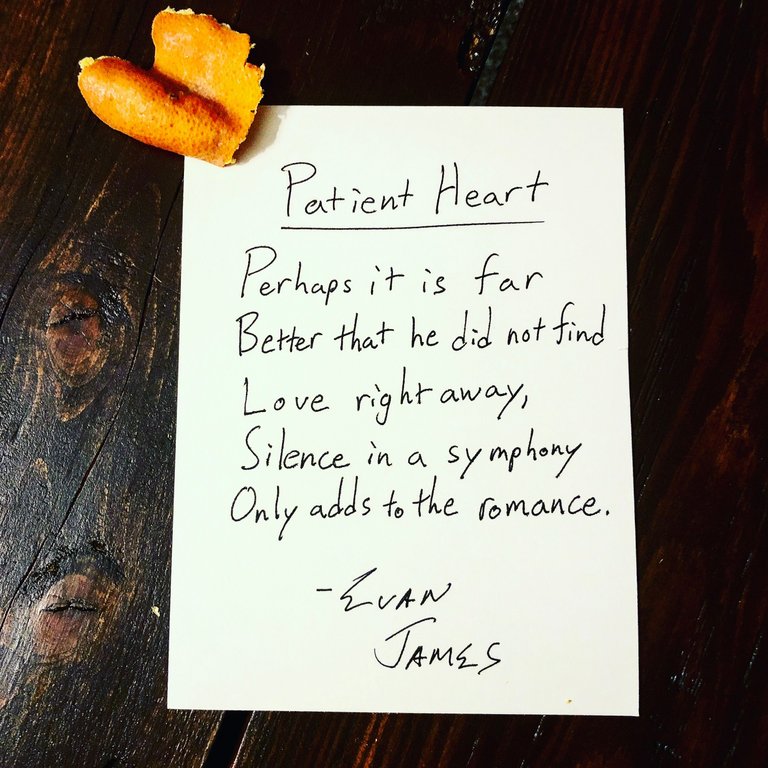 Patient Heart
Perhaps it is far
Better that he did not find
Love right away,
Silence in a symphony
Only adds to the romance.
- Evan
James